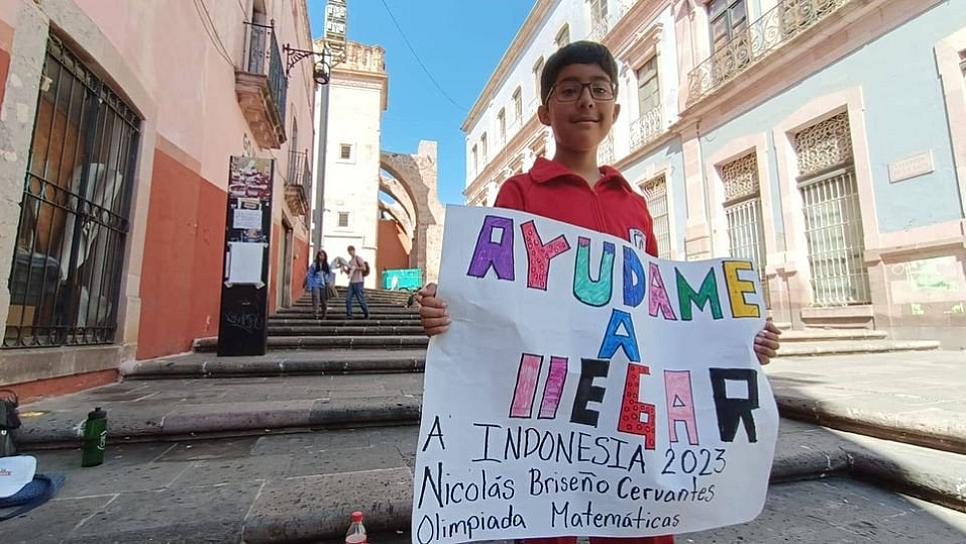 AYÚDAME
A
llEGAR
A INDONESIA 2023
Nicolás Briseño Cervantes
Olimpiada Matemáticas